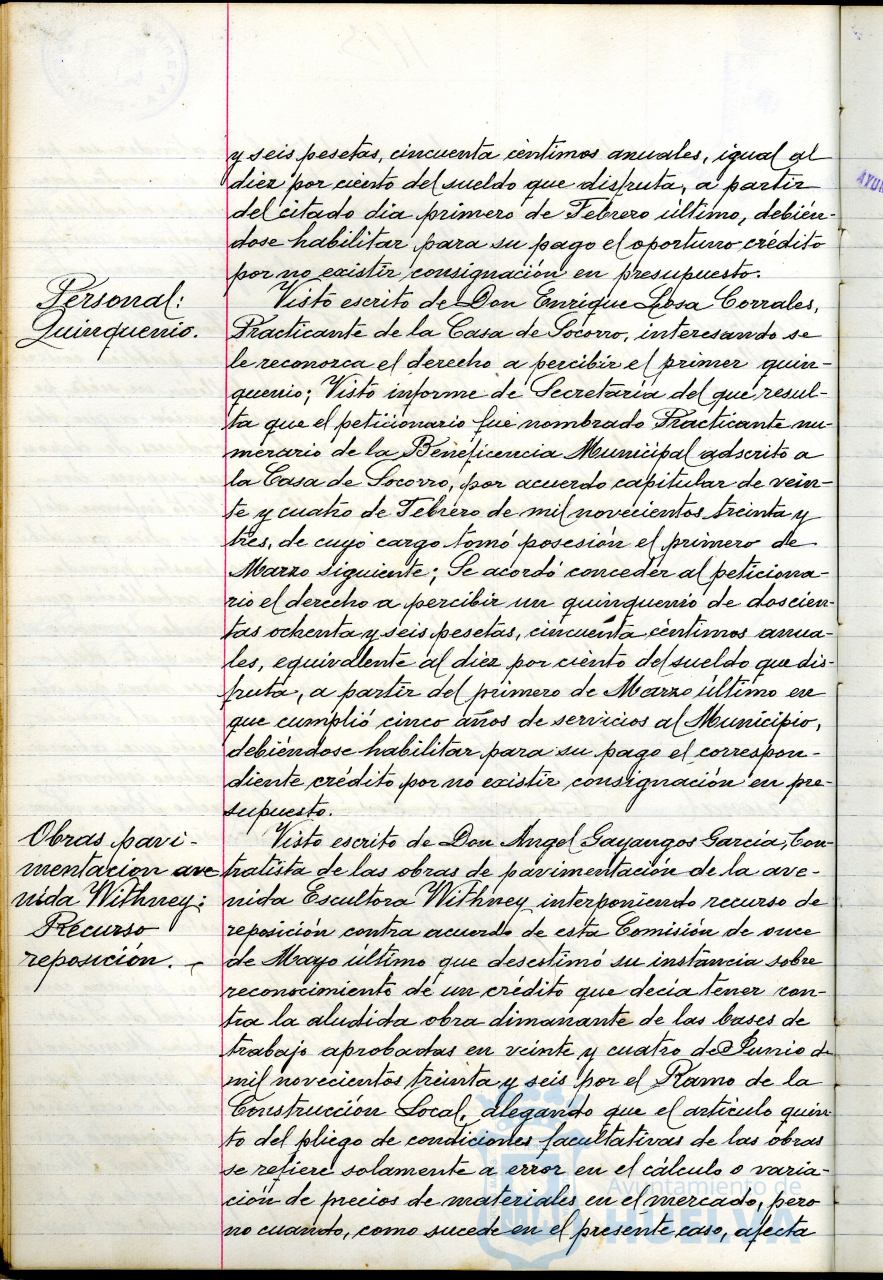 y seis pesetas, cincuenta céntimos anuales, igual al
diez por ciento del sueldo que disfruta, a partir
del citado dia primero de Febrero último, debién-
dose habilitar para su pago el oportuno crédito
por no existir consignación en presupuesto.
Personal:
Quinquenio.
Visto escrito de Don Enrique Losa Corrales,
Practicante de la Casa de Socorro, interesando se
le reconozca el derecho a percibir el primer quin-
quenio; Visto informe de Secretaría del que resul-
ta que el peticionario fue nombrado Practicante nu-
merario de la Beneficencia Municipal adscrito a
la Casa de Socorro, por acuerdo capitular de vein-
te y cuatro de Febrero de mil novecientos treinta y
tres, de cuyo cargo tomó posesión el primero de
Marzo siguiente; Se acordó conceder al peticiona-
rio el derecho a percibir un quinquenio de doscien-
tas ochenta y seis pesetas, cincuenta céntimos anua-
les, equivalente al diez por ciento del sueldo que dis-
fruta, a partir del primero de Marzo último en
que cumplió cinco años de servicios al Municipio,
debiéndose habilitar para su pago el correspon-
diente crédito por no existir consignación en pre-
supuesto.
Obras pavi-
mentación ave-
nida Withney:
Recurso
reposición.-
Visto escrito de Don Angel Gayangos García, Con-
tratista de las obras de pavimentación de la ave-
nida Escultora Withney interponiendo recurso de
reposición contra acuerdo de esta Comisión de once
de Mayo último que desestimó su instancia sobre
reconocimiento de un crédito que decía tener con-
tra la aludida obra dimanante de las bases de
trabajo aprobadas en veinte y cuatro de Junio de
mil novecientos treinta y seis por el Ramo de la
Construcción Local, alegando que el artículo quin-
to del pliego de condiciones facultativas de las obras
se refiere solamente a error en el cálculo o varia-
ción de precios de materiales en el mercado, pero
no cuando, como sucede en el presente caso, afecta
Ayuntamiento de
HUELVA